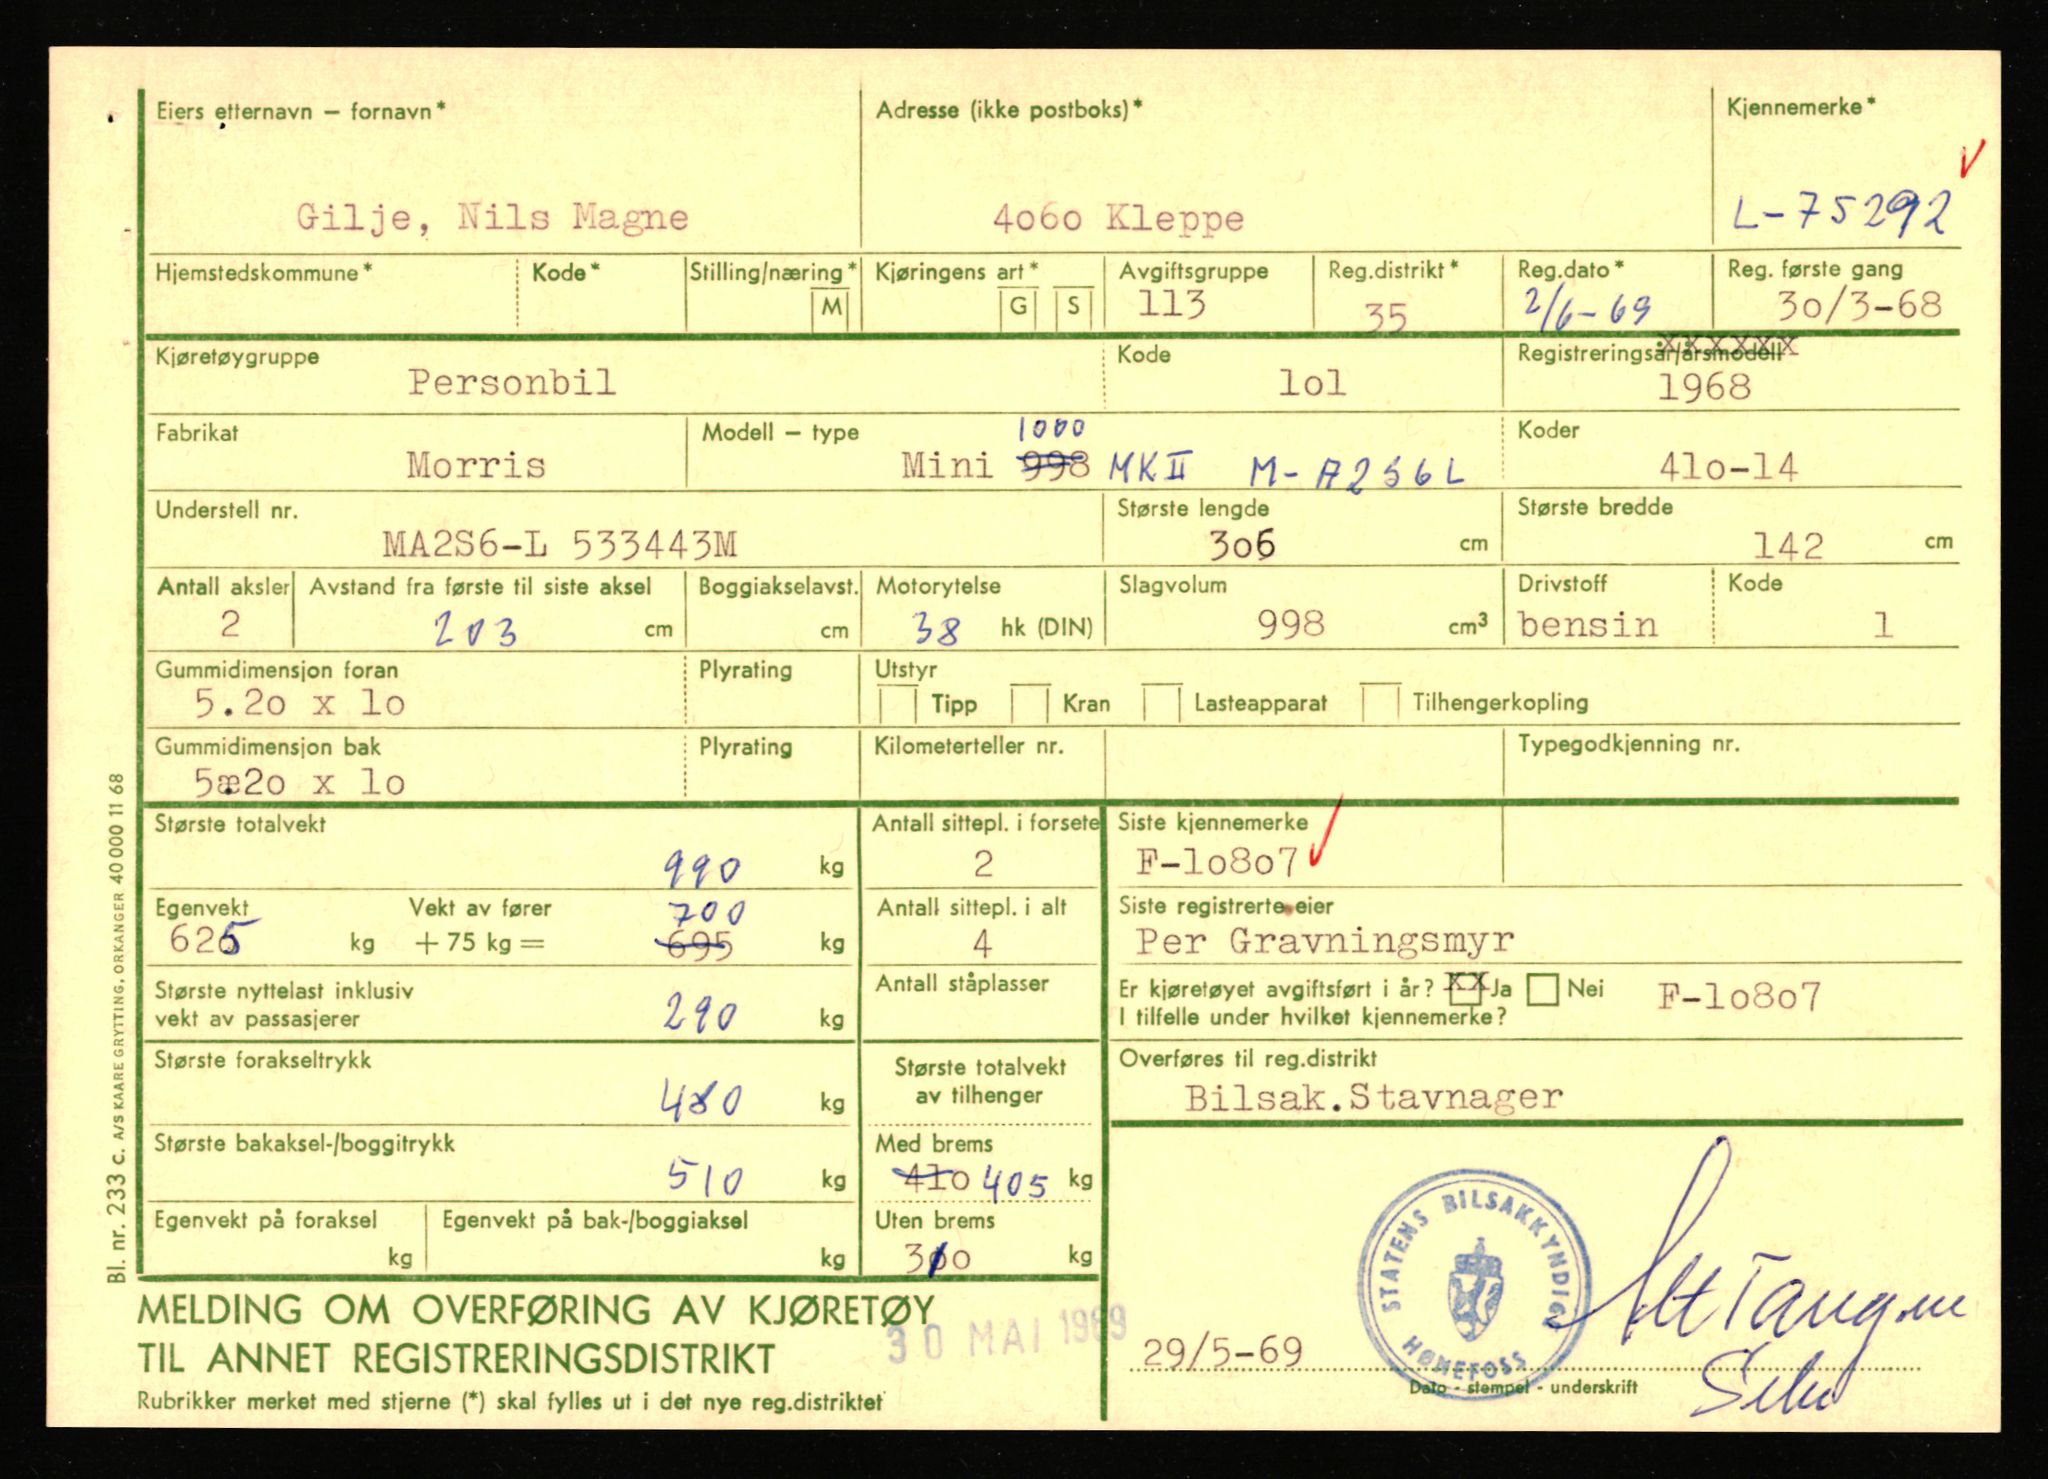 Eiers etternavn – fornavn*
Adresse (ikke postboks)*
Kjennemerke*
Gilje, Nils Magne
4o6o Kleppe
L-75292
Hjemstedskommune*
Kode*
Stilling/næring*
Kjøringens art*
Avgiftsgruppe
Reg.distrikt*
Reg.dato*
Reg. første gang
M
G
S
113
35
2/6-69
3o/3-68
Kjøretøygruppe
Kode
Registreringsår/årsmodell
Personbil
lol
1968
Fabrikat
Modell – type
1000
Koder
Morris
Mini 998 MK II M-A2S6L
41o-14
Understell nr.
Største lengde
Største bredde
MA2S6-L 533443M
3o6 cm
142 cm
Antall aksler
Avstand fra første til siste aksel
Boggiakselavst.
Motorytelse
Slagvolum
Drivstoff
Kode
2
203 cm
cm
38 hk (DIN)
998 cm³
bensin
1
Gummidimensjon foran
Plyrating
Utstyr
5.2o x lo
Tipp
Kran
Lasteapparat
Tilhengerkopling
Gummidimensjon bak
Plyrating
Kilometerteller nr.
Typegodkjenning nr.
5æ2o x lo
Største totalvekt
990 kg
Antall sittepl. i forsete
2
Siste kjennemerke
F-lo8o7
Egenvekt
Vekt av fører
700
625 kg + 75 kg = 695 kg
Antall sittepl. i alt
4
Siste registrerte eier
Per Gravningsmyr
Største nyttelast inklusiv
vekt av passasjerer
290 kg
Antall ståplasser
Er kjøretøyet avgiftsført i år? XX Ja Nei F-lo8o7
I tilfelle under hvilket kjennemerke?
Største forakseltrykk
480 kg
Største totalvekt
av tilhenger
Overføres til reg.distrikt
Bilsak.Stavnager
Største bakaksel-/boggitrykk
510 kg
Med brems
41o 405 kg
Egenvekt på foraksel
kg
Egenvekt på bak-/boggiaksel
kg
Uten brems
310 kg
STATENS BILSAKKYNDIGE
HØNEFOSS
MELDING OM OVERFØRING AV KJØRETØY
TIL ANNET REGISTRERINGSDISTRIKT
Rubrikker merket med stjerne (*) skal fylles ut i det nye reg.distriktet
30 MAI 1969
29/5-69
Dato - stempel - underskrift
Bl. nr. 233 c. A/S KAARE GRYTTING, ORKANGER 40 000 11 68